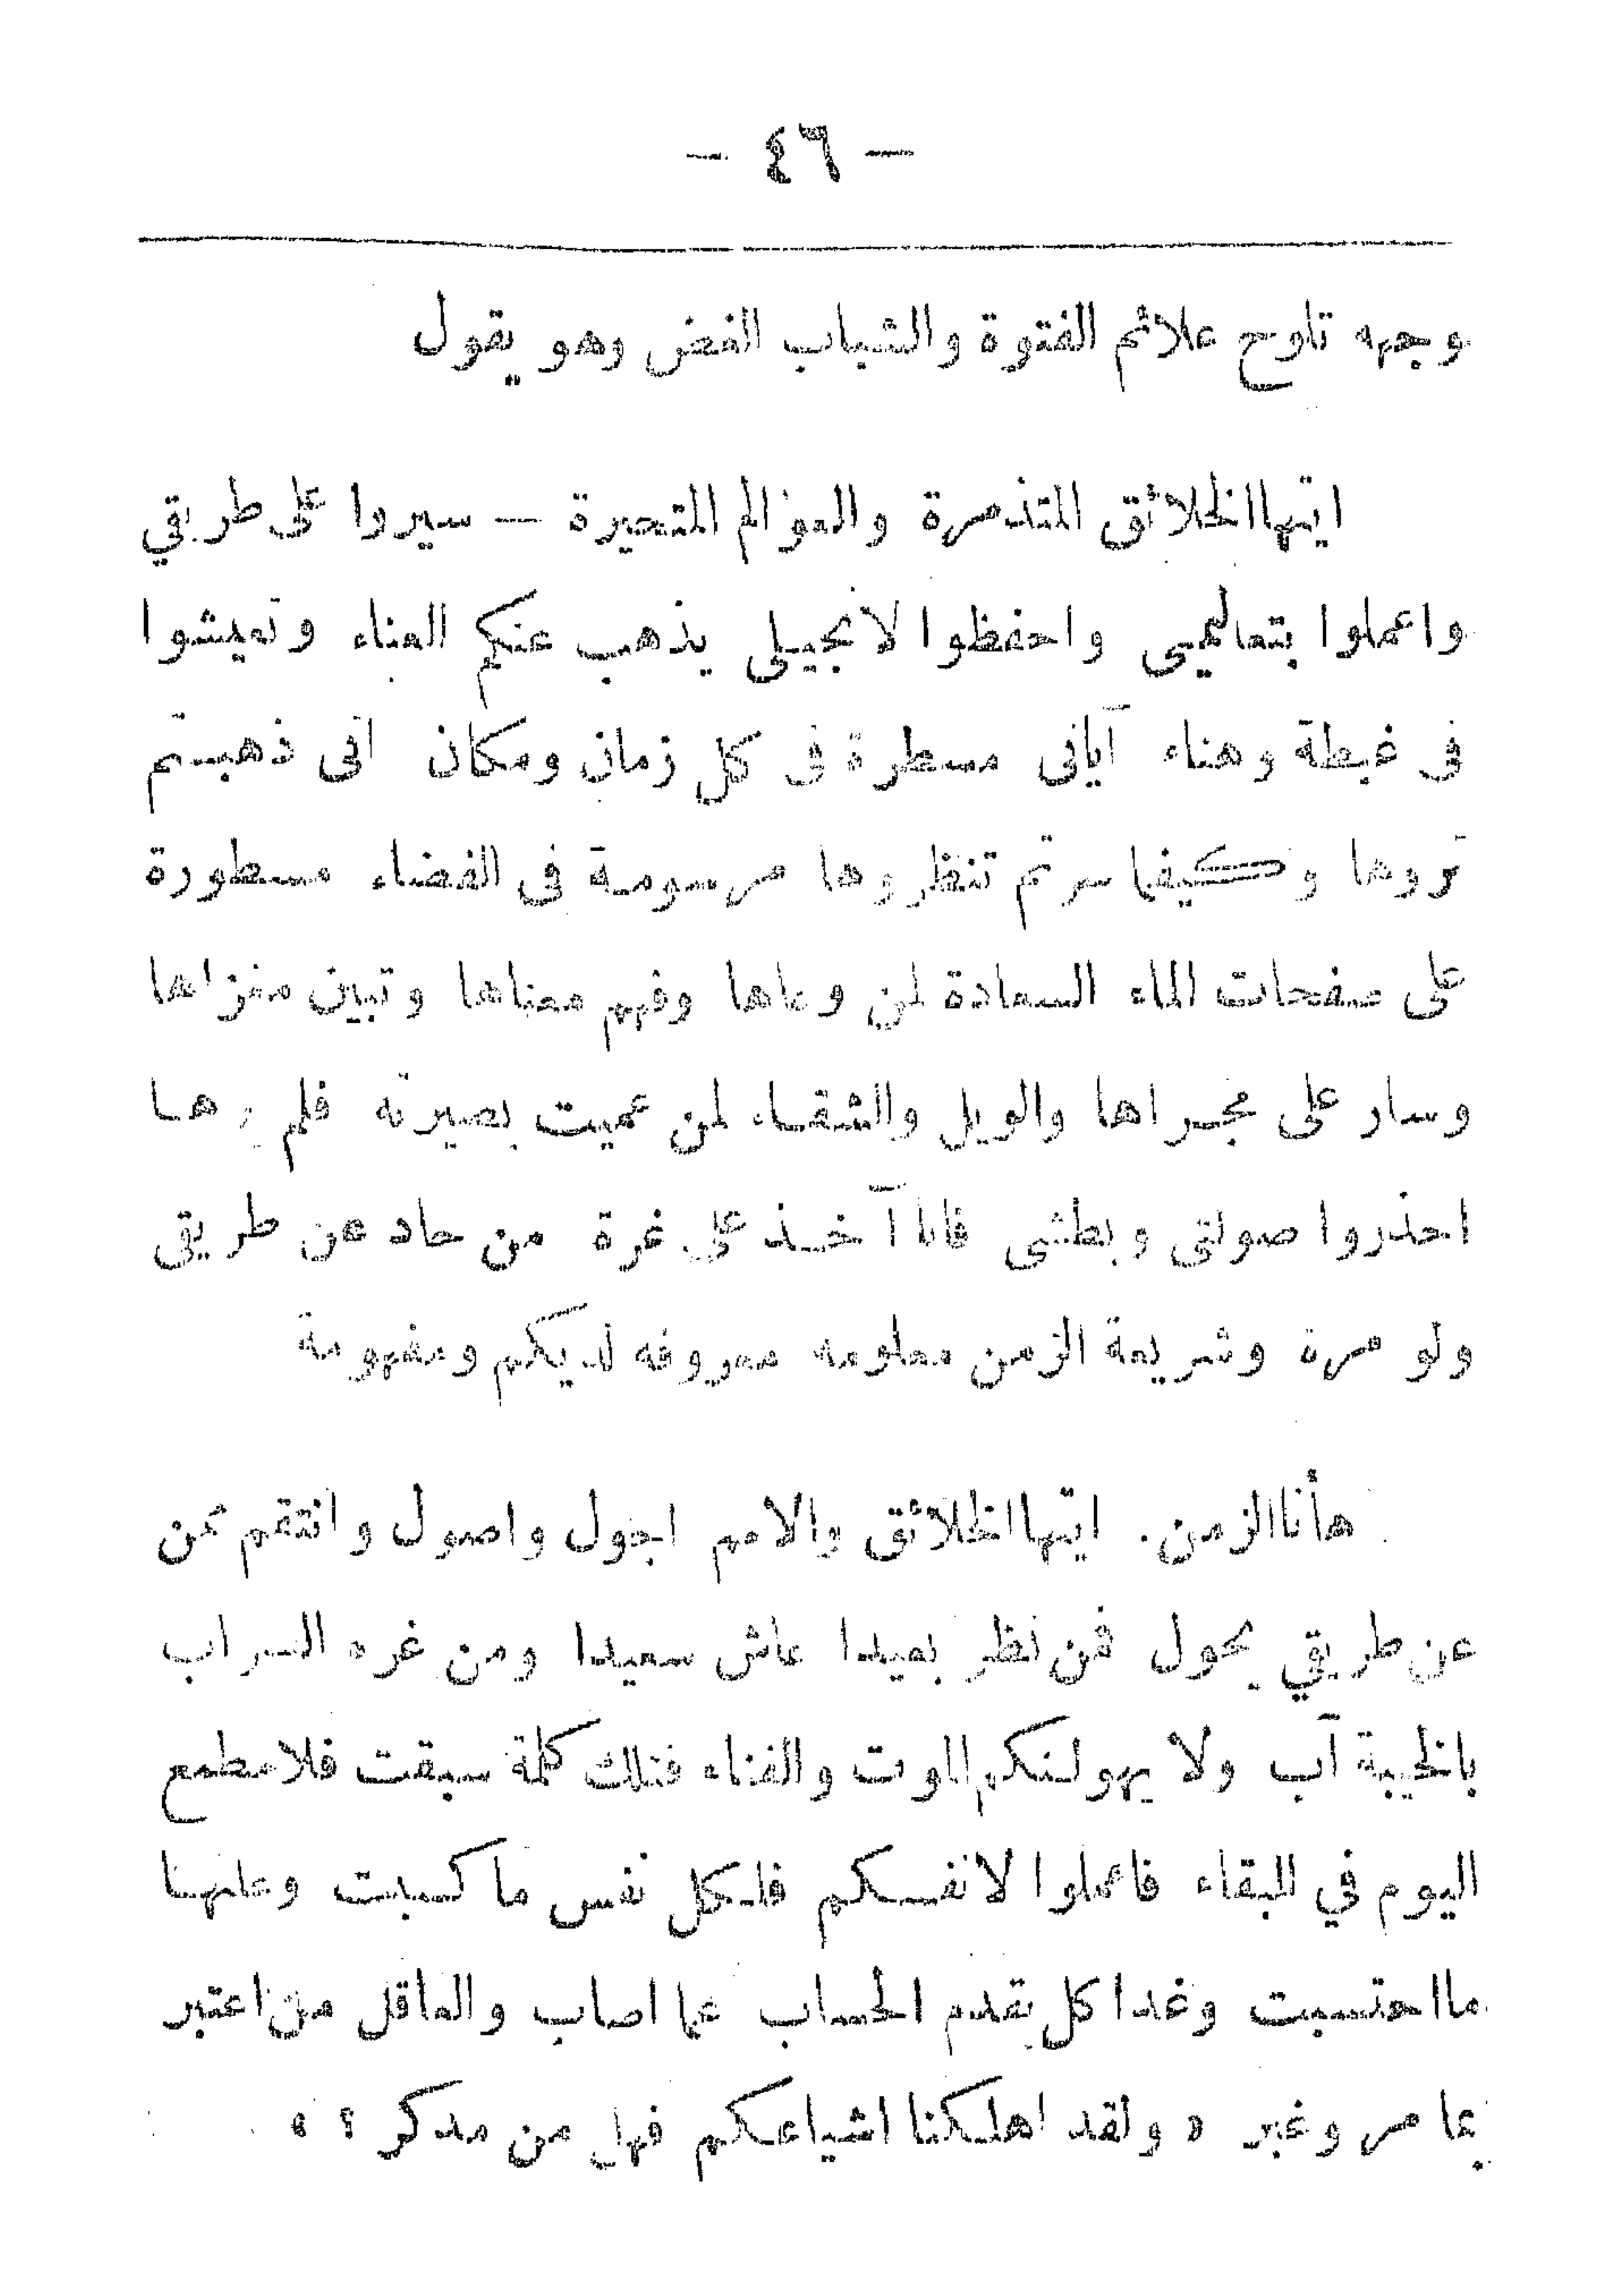 — ٤٦ —
وجهه تلوح علائم الفتوة والشباب الغض وهو يقول
ايتها الخلائق المتذمرة والعوالم المتحيرة — سيروا على طريقي
واعملوا بتعاليمى واحفظوا لانجيلى يذهب عنكم العناء وتعيشوا
فى غبطة وهناء آياتى مسطرة فى كل زمان ومكان انى ذهبتم
تروها وكيفما سرتم تنظروها مرسومة فى الفضاء مسطورة
على صفحات الماء السعادة لمن وعاها وفهم معناها وتبين مغزاها
وسار على مجراها والويل والشقاء لمن عميت بصيرته فلم يرها
احذروا صولتى وبطشى فانا آخذ على غرة من حاد عن طريقى
ولو مرة وشريعة الزمن معلومه معروفه لديكم ومفهومة
هأنا الزمن . ايتها الخلائق والامم اجول واصول وانتقم ممن
عن طريقي يحول فمن نظر بعيدا عاش سعيدا ومن غره السراب
بالخيبة آب ولا يهولنكم الموت والفناء فتلك كلمة سبقت فلا مطمع
اليوم في البقاء فاعملوا لانفسكم فلكل نفس ما كسبت وعليها
ما احتسبت وغدا كل يقدم الحساب عما اصاب والعاقل من اعتبر
بما مر وغبر « ولقد اهلكنا اشياعكم فهل من مدكر ؟ »